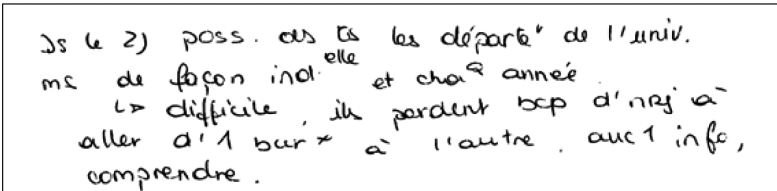 Ds le 2) poss. ds ts les départᵗ de l'univ.
ms de façon ind.elle et chaQ année
↳ difficile, ils perdent bcp d'nrj à
aller d'1 bur x à l'autre. auc 1 info,
comprendre.